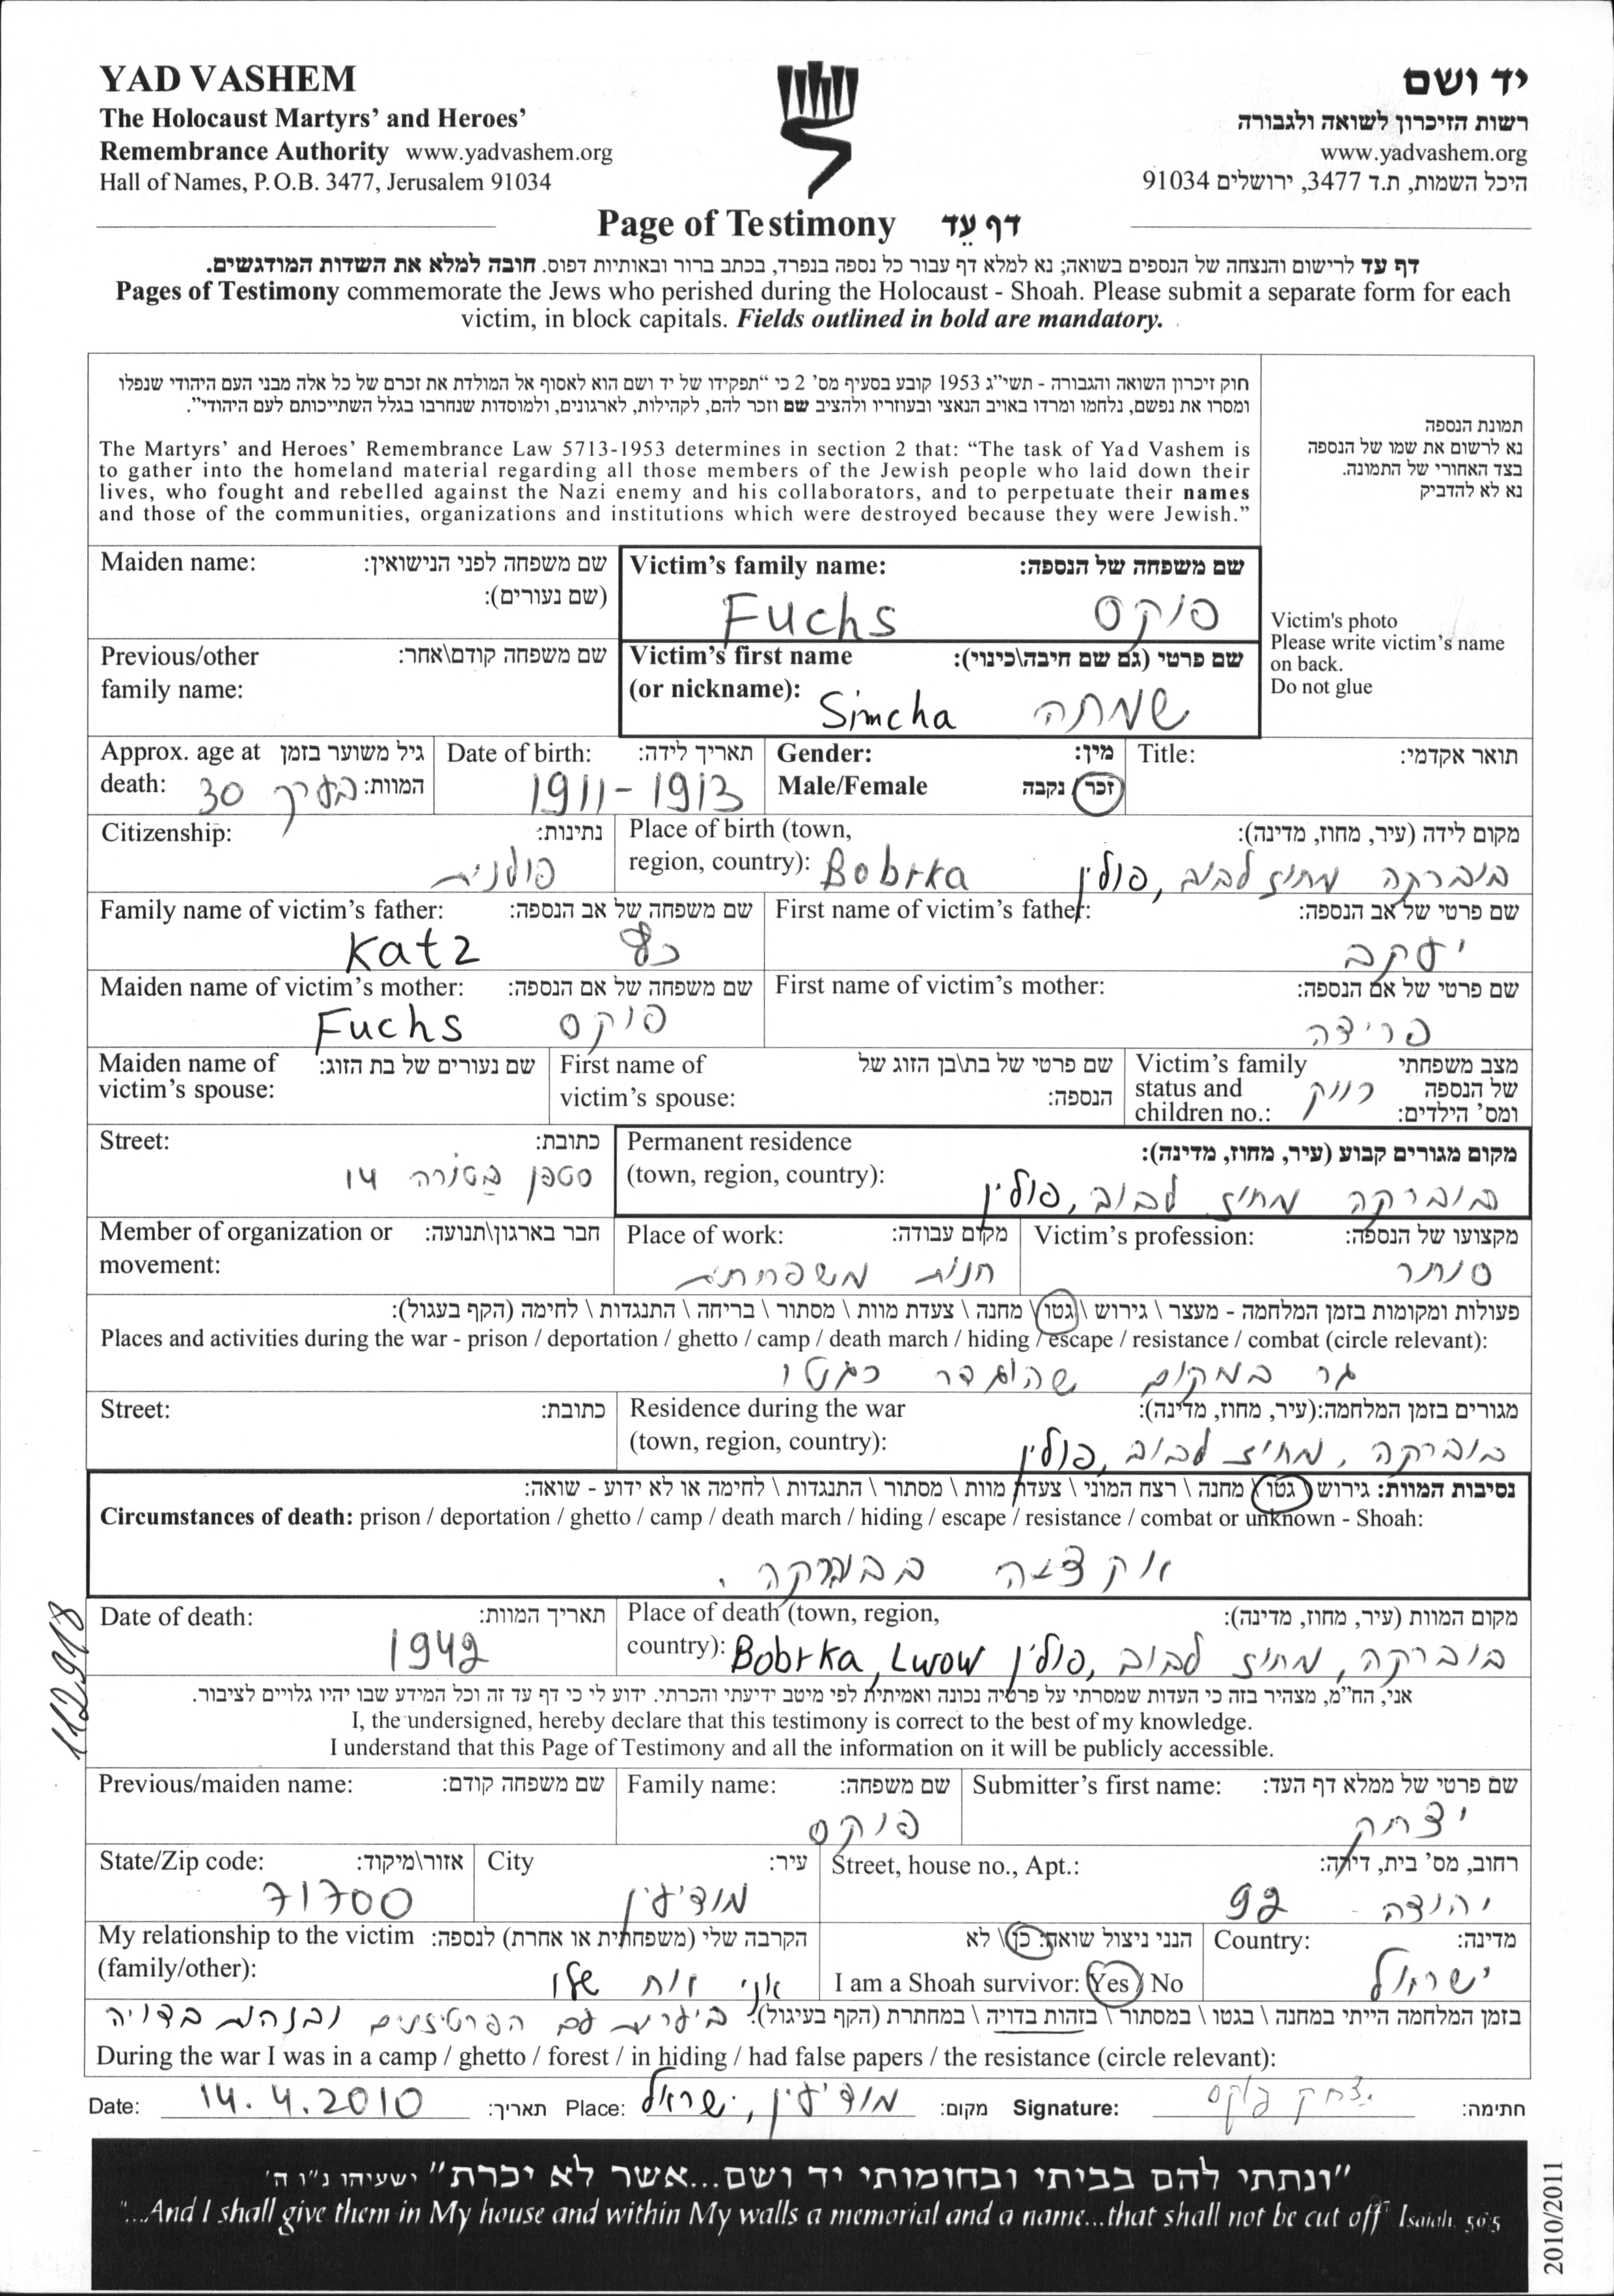 YAD VASHEM
The Holocaust Martyrs' and Heroes'
Remembrance Authority www.yadvashem.org
Hall of Names, P.O.B. 3477, Jerusalem 91034
יד ושם
רשות הזיכרון לשואה ולגבורה
www.yadvashem.org
היכל השמות, ת.ד 3477, ירושלים 91034
Page of Testimony דף עֵד
דף עד לרישום והנצחה של הנספים בשואה; נא למלא דף עבור כל נספה בנפרד, בכתב ברור ובאותיות דפוס. חובה למלא את השדות המודגשים.
Pages of Testimony commemorate the Jews who perished during the Holocaust - Shoah. Please submit a separate form for each
victim, in block capitals. Fields outlined in bold are mandatory.
חוק זיכרון השואה והגבורה - תשי"ג 1953 קובע בסעיף מס' 2 כי "תפקידו של יד ושם הוא לאסוף אל המולדת את זכרם של כל אלה מבני העם היהודי שנפלו
ומסרו את נפשם, נלחמו ומרדו באויב הנאצי ובעוזריו ולהציב שם וזכר להם, לקהילות, לארגונים, ולמוסדות שנחרבו בגלל השתייכותם לעם היהודי".
The Martyrs' and Heroes' Remembrance Law 5713-1953 determines in section 2 that: "The task of Yad Vashem is
to gather into the homeland material regarding all those members of the Jewish people who laid down their
lives, who fought and rebelled against the Nazi enemy and his collaborators, and to perpetuate their names
and those of the communities, organizations and institutions which were destroyed because they were Jewish."
תמונת הנספה
נא לרשום את שמו של הנספה
בצד האחורי של התמונה.
נא לא להדביק
Victim's photo
Please write victim's name
on back.
Do not glue
Maiden name: שם משפחה לפני הנישואין:
(שם נעורים):
Victim's family name: שם משפחה של הנספה:
Fuchs פוקס
Previous/other שם משפחה קודם\אחר:
family name:
Victim's first name שם פרטי (גם שם חיבה\כינוי):
(or nickname): Simcha שמחה
Approx. age at גיל משוער בזמן
death: המוות: בערך 30
Date of birth: תאריך לידה:
1911-1913
Gender: מין:
Male/Female זכר\ נקבה
Title: תואר אקדמי:
Citizenship: נתינות:
פולנית
Place of birth (town, מקום לידה (עיר, מחוז, מדינה):
region, country): Bobrka בוברקה מחוז לבוב, פולין
Family name of victim's father: שם משפחה של אב הנספה:
Katz כץ
First name of victim's father: שם פרטי של אב הנספה:
יעקב
Maiden name of victim's mother: שם משפחה של אם הנספה:
Fuchs פוקס
First name of victim's mother: שם פרטי של אם הנספה:
פרידה
Maiden name of שם נעורים של בת הזוג:
victim's spouse:
First name of שם פרטי של בת\בן הזוג של
victim's spouse: הנספה:
Victim's family מצב משפחתי
status and של הנספה
children no.: ומס' הילדים:
רווק
Street: כתובת:
סטפן בטורה 14
Permanent residence מקום מגורים קבוע (עיר, מחוז, מדינה):
(town, region, country):
בוברקה מחוז לבוב, פולין
Member of organization or חבר בארגון\תנועה:
movement:
Place of work: מקום עבודה:
חנות משפחתית
Victim's profession: מקצועו של הנספה:
סוחר
פעולות ומקומות בזמן המלחמה - מעצר \ גירוש \ גטו \ מחנה \ צעדת מוות \ מסתור \ בריחה \ התנגדות \ לחימה (הקף בעגול):
Places and activities during the war - prison / deportation / ghetto / camp / death march / hiding / escape / resistance / combat (circle relevant):
גר במקום שהוגדר כגטו
Street: כתובת:
Residence during the war מגורים בזמן המלחמה:(עיר, מחוז, מדינה):
(town, region, country):
בוברקה, מחוז לבוב, פולין
נסיבות המוות: גירוש \ גטו \ מחנה \ רצח המוני \ צעדת מוות \ מסתור \ התנגדות \ לחימה או לא ידוע - שואה:
Circumstances of death: prison / deportation / ghetto / camp / death march / hiding / escape / resistance / combat or unknown - Shoah:
אקציה בבוברקה.
112918
Date of death: תאריך המוות:
1942
Place of death (town, region, מקום המוות (עיר, מחוז, מדינה):
country): Bobrka, Lwow בוברקה, מחוז לבוב, פולין
אני, הח"מ, מצהיר בזה כי העדות שמסרתי על פרטיה נכונה ואמיתית לפי מיטב ידיעתי והכרתי. ידוע לי כי דף עד זה וכל המידע שבו יהיו גלויים לציבור.
I, the undersigned, hereby declare that this testimony is correct to the best of my knowledge.
I understand that this Page of Testimony and all the information on it will be publicly accessible.
Previous/maiden name: שם משפחה קודם:
Family name: שם משפחה:
פוקס
Submitter's first name: שם פרטי של ממלא דף העד:
יצחק
State/Zip code: אזור\מיקוד:
71700
City עיר:
מודיעין
Street, house no., Apt.: רחוב, מס' בית, דירה:
יהודה 92
My relationship to the victim הקרבה שלי (משפחתית או אחרת) לנספה:
(family/other): אני אח שלו
הנני ניצול שואה: כן \ לא
I am a Shoah survivor: Yes / No
Country: מדינה:
ישראל
בזמן המלחמה הייתי במחנה \ בגטו \ במסתור \ בזהות בדויה \ במחתרת (הקף בעיגול): ביערות עם הפרטיזנים ובזהות בדויה
During the war I was in a camp / ghetto / forest / in hiding / had false papers / the resistance (circle relevant):
Date: 14.4.2010 תאריך: Place: מודיעין, ישראל מקום: Signature: יצחק פוקס חתימה:
"ונתתי להם בביתי ובחומותי יד ושם...אשר לא יכרת" ישעיהו נ"ו ה'
"...And I shall give them in My house and within My walls a memorial and a name...that shall not be cut off" Isaiah. 56:5
2010/2011